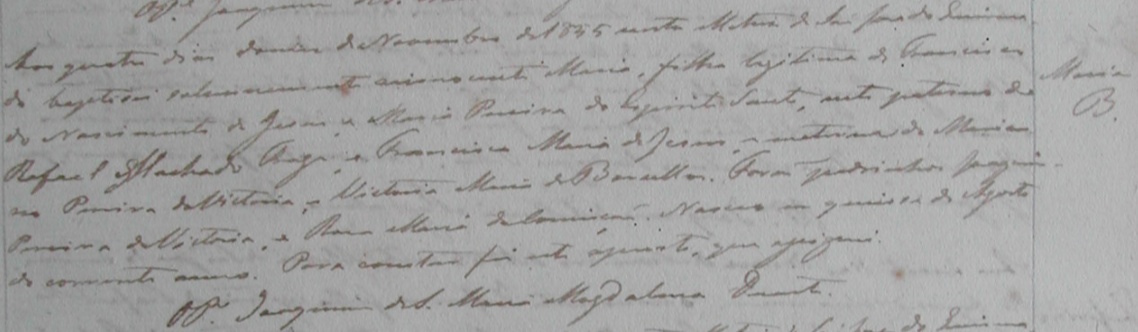 Aos quatro dias do mez de Novembro de 1845 nesta Matriz de São José do
de baptisei solemnemente a innocente Maria, filha legitima de Francisco
do Nascimento de Jesus, e Maria Pereira do Espirito Santo, neta paterna de
Rafael Machado e Francisca Maria de Jesus, e materna de Marian
no Pereira da Victoria, e Victoria Maria de Barcellos. Forão padrinhos Joaquim
Pereira da Victoria, e Rosa Maria da Conceição. Nasceo em quinze de Agosto
do corrente anno. Para constar fiz este assento, que assignei.
Joaquim de S. Maria Magdalena Duarte.
Maria
B.